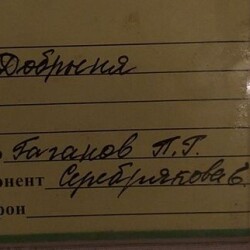 Добрыня
Гаганов П.Г.
онент Серебрякова Е
рон